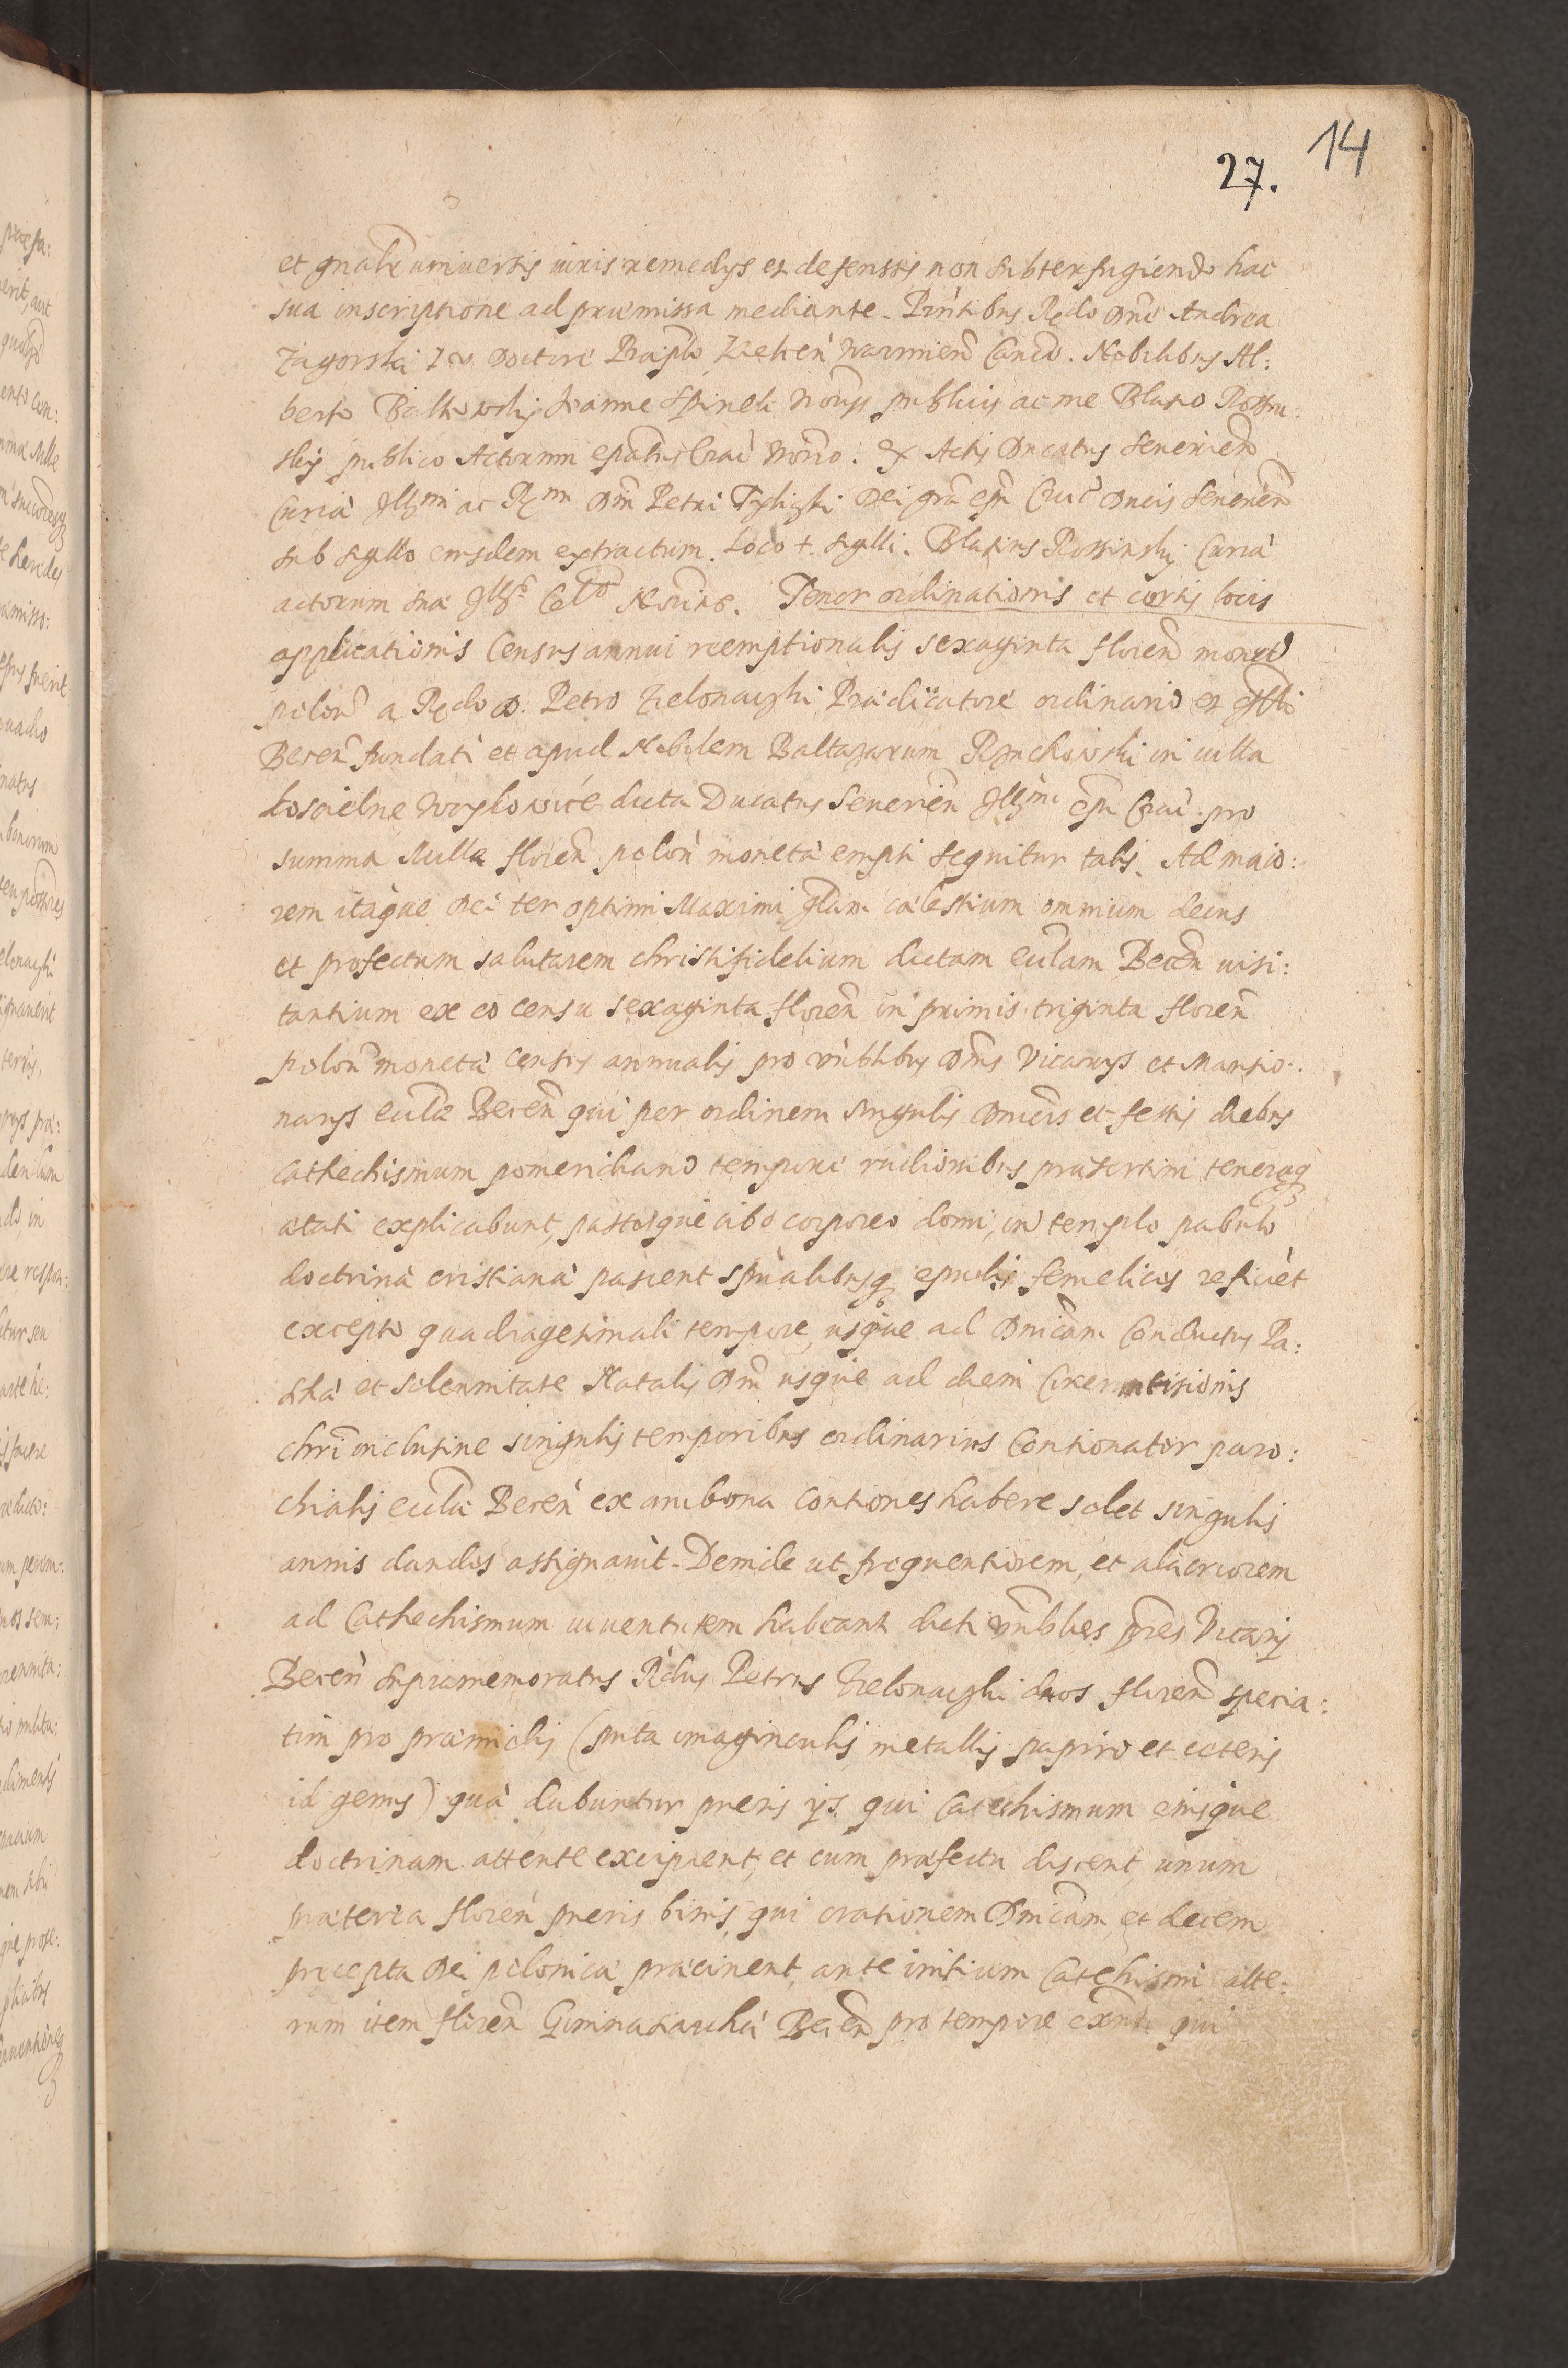 14
27.
et gnalr universis iuris remedys et defensis non subterfugiendo hac
sua inscriptione ad praemissa mediante. Pntibus Rdo Dno Andrea
Zagorski Doctore Kielcen Warmien Canco. Nobilibus Al:
berto Balkowsky Joanne Spinek Norys publicis ac me Blasio Rossin:
sky publico Actorum epatus Crac Norio. Ex Actis Ducatus Severien
Curia Illmi ac Rmi Dni Petri Tylizki Dei gra epi Crac Ducis Severien
sub sygillo eiusdem extractum. Loco + sygilli. Blasius Rossinsky Curia
actorum sua Notarius. Tenor ordinationis et certis locis
applicationis Census annui reemptionalis sexaginta floren monetae
polon a Rdo D. Petro Zielonaczki Praedicatore ordinario
Becen fundati et apud Nobilem Baltazarum Rynchowski in villa
Koscielne Woykowice dicta Ducatus Severien Illmi epi Crac pro
summa Mille floren polon moneta empti sequitur talis. Ad maio:
rem itaque Dei ter optimi Maximi glam caelestium omnium decus
et profectum salutarem christifidelium dictam ecclam Becen visi:
tantium ex eo censu sexaginta floren in primis triginta floren
polon moneta census annualis pro Dnis Vicarys et Mansio:
narys eccla Becen qui per ordinem singulis Dnicis et festis diebus
Cathechismum pomeridiano tempore rudioribus praesertim teneraq
aetati explicabunt, pastosque cibo corporeo domi, in templo pabulo
doctrina cristiana pascent spualibusq epulis femelicos reficiet
excepto quadragesimali tempore, usque ad Dnicam Conductus Pa:
scha et solennitate Natalis Dni usque ad diem Circumcisionis
chri inclusive singulis temporibus ordinarius Contionator paro:
chialis eccla Becen ex ambona contiones habere solet singulis
annis dandos assignavit. Deinde ut frequentiorem, et alacriorem
ad Cathechismum iuventutem habeant dicti Vicary
Becen supramemoratus Rdus Petrus Zielonaczki duos floren specia:
tim pro praemiolis (puta imaginculis metallis papiro et ceteris
id genus) qua dabuntur pueris ys qui Catechismum eiusque
doctrinam attente excipient, et cum profectu discent, unum
praeterea floren pueris binis, qui orationem Dnicam, et decem
praecepta Dei polonica praecinent, ante initium Catechismi alte:
rum item floren Gimnasiarcha Becen pro tempore exnti qui